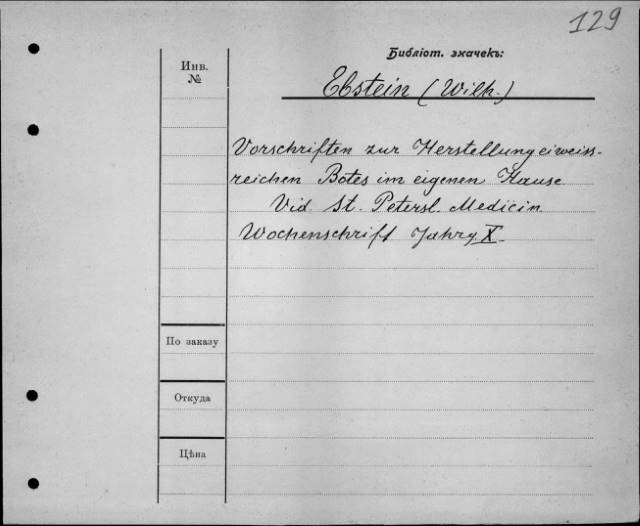 129
Библіот. значекъ:
Инв.
№
Ebstein (Wilh.)
Vorschriften zur Herstellung eiweiss-
reichen Botes im eigenen Hause
Vid. St. Petersl. Medicin.
Wochenschrift Jahrg X.
По заказу
Откуда
Цѣна